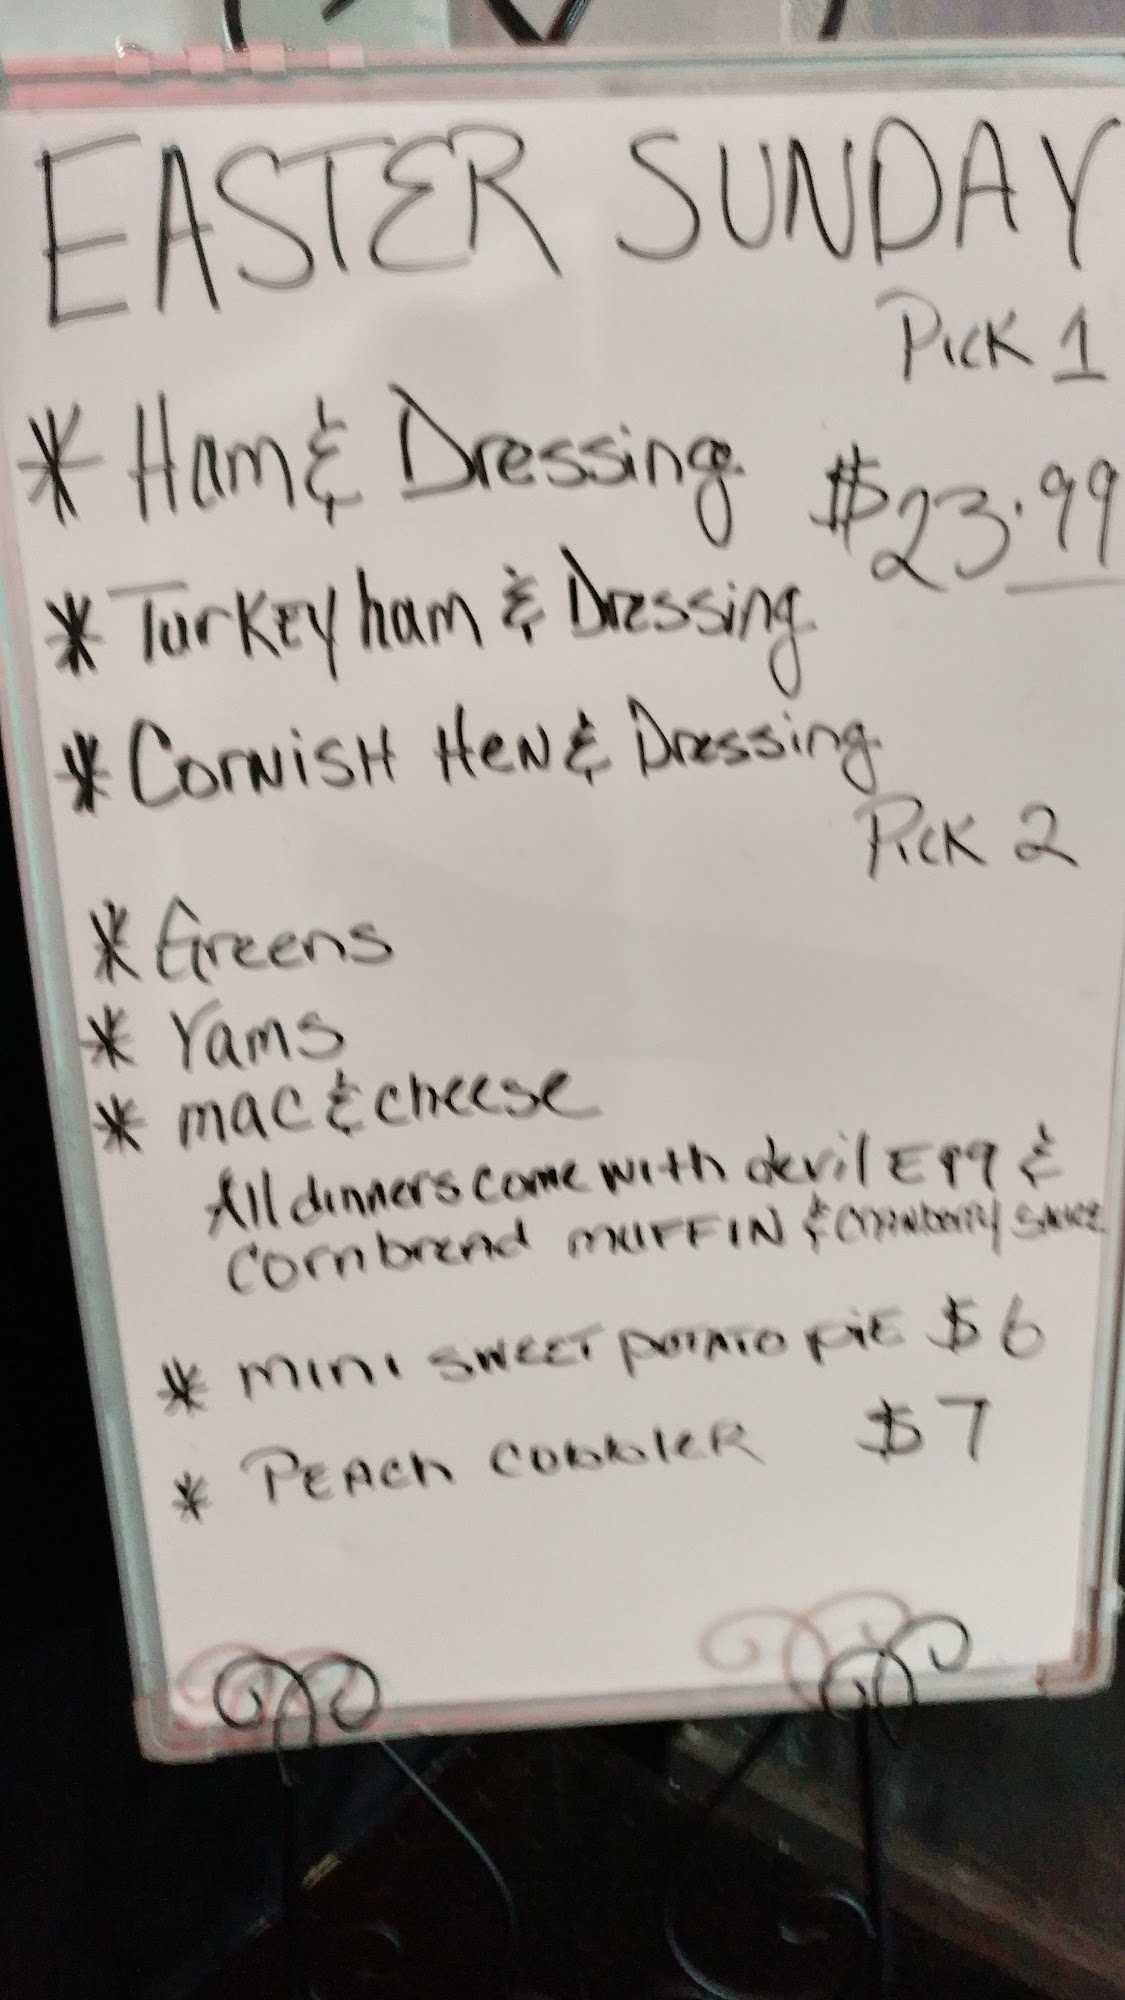 EASTER SUNDAY
Pick 1
* Ham & Dressing $23.99
* Turkey ham & Dressing
* Cornish Hen & Dressing
Pick 2
* Greens
* Yams
* mac & cheese
All dinners come with devil Egg &
cornbread muffin & cranberry sauce
* mini sweet potato pie $6
* Peach cobbler $7